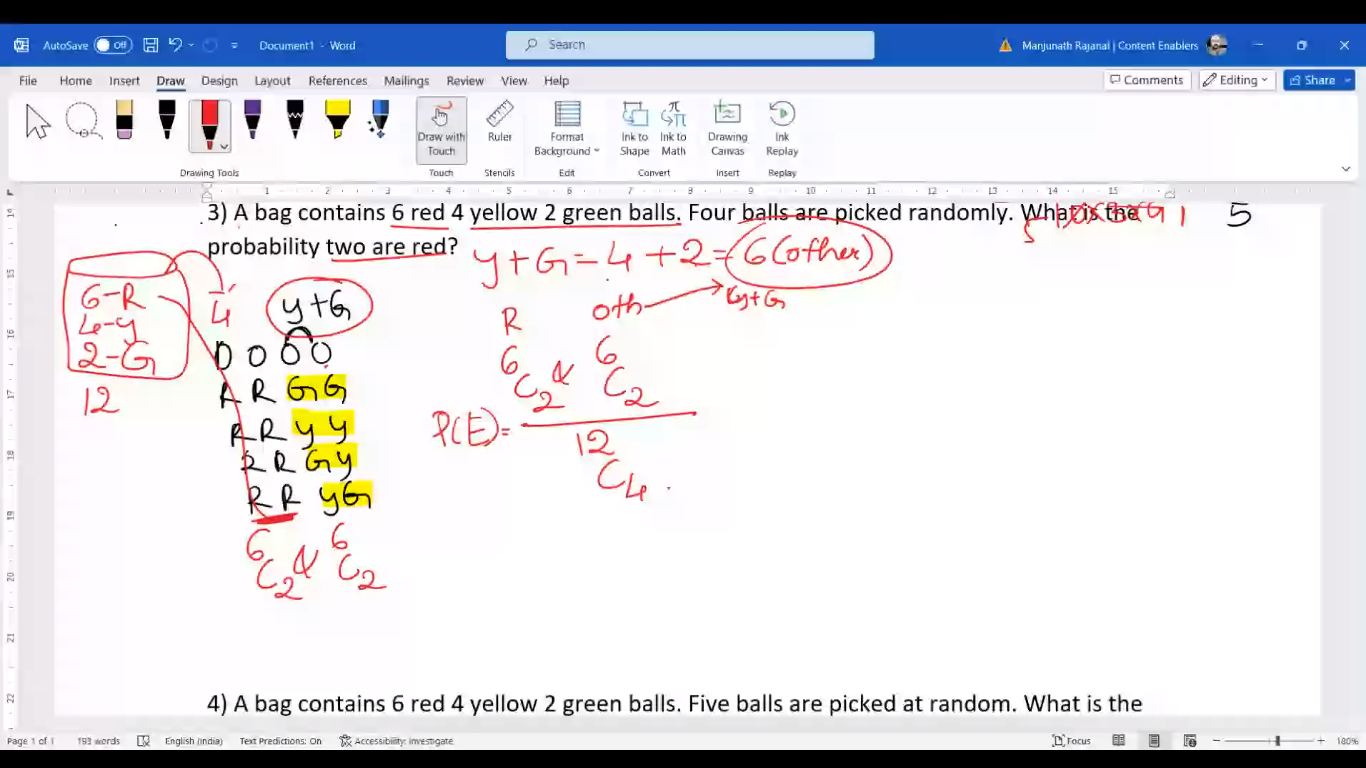 AutoSave Off Document1 - Word Search Manjunath Rajanal | Content Enablers
File Home Insert Draw Design Layout References Mailings Review View Help Comments Editing Share
Draw with Touch Ruler Format Background Ink to Shape Ink to Math Drawing Canvas Ink Replay
Drawing Tools Touch Stencils Edit Convert Insert Replay
1 2 3 4 5 6 7 8 9 10 11 12 13 14 15
3) A bag contains 6 red 4 yellow 2 green balls. Four balls are picked randomly. What is the
5
probability two are red?
y+G=4+2=6(other)
6-R
4-y
2-G
12
4
y+G
R oth y+G
R R G G
R R y y
R R G y
R R y G
6C2 & 6C2
6C2 & 6C2
P(E)=
12C4
4) A bag contains 6 red 4 yellow 2 green balls. Five balls are picked at random. What is the
Page 1 of 1 193 words English (India) Text Predictions: On Accessibility: Investigate Focus 180%